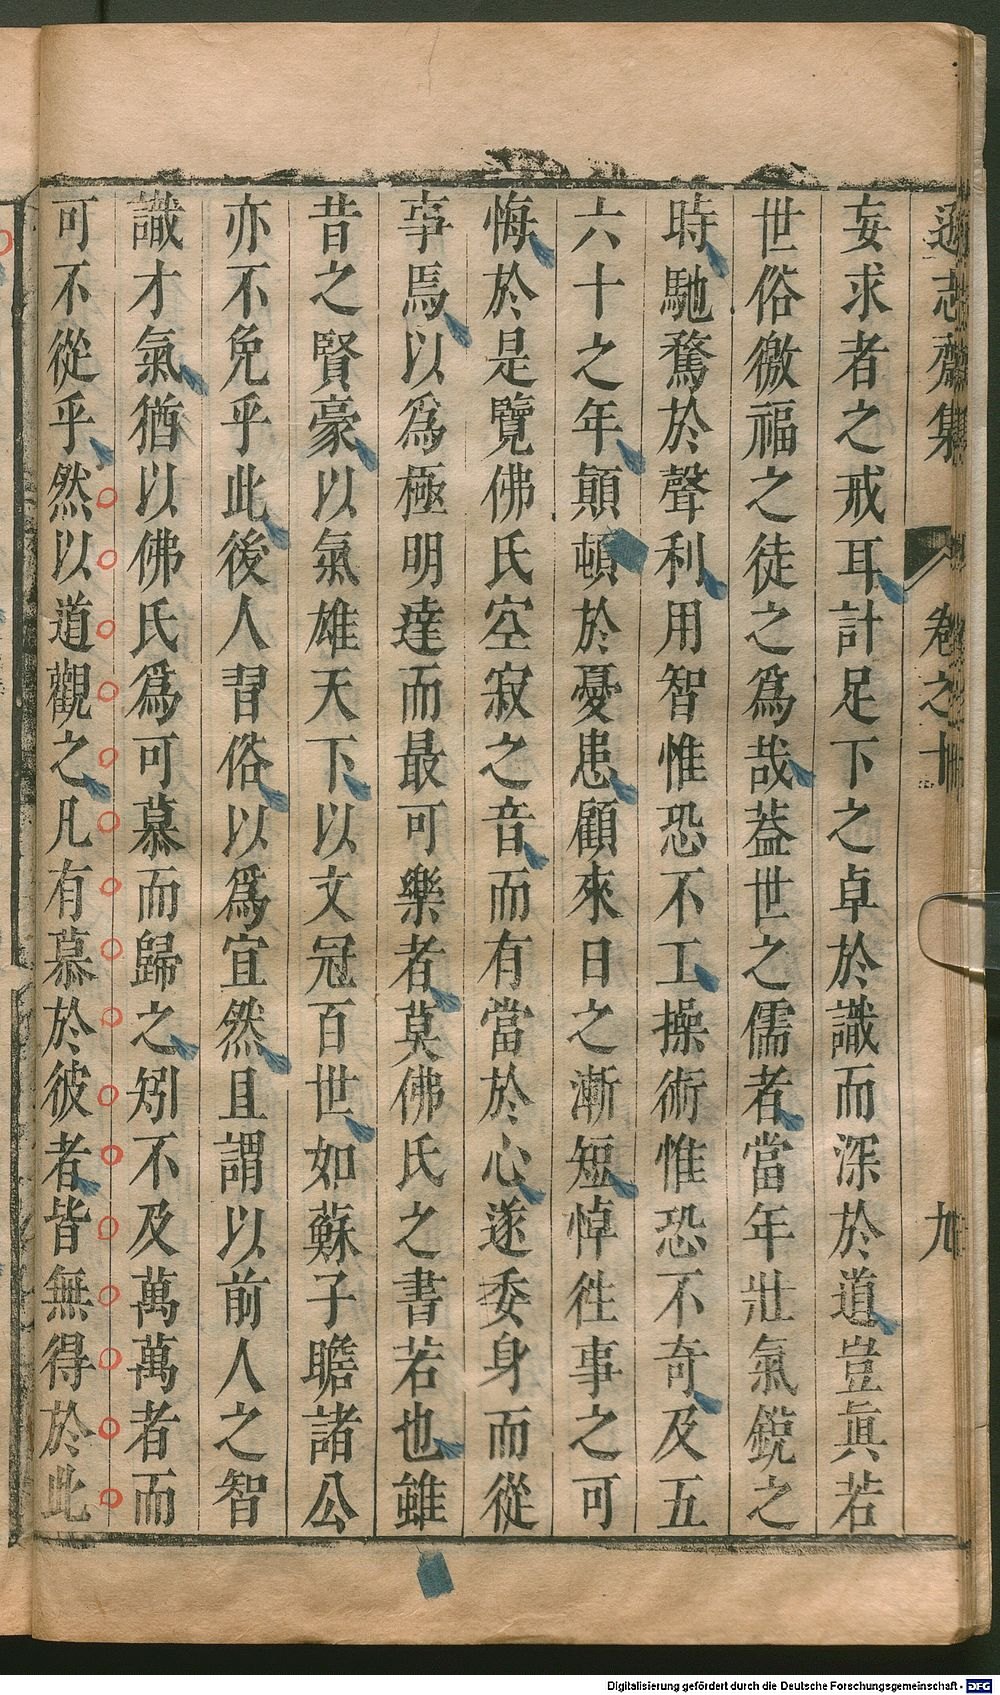 遜志齋集 卷之十 九
妄求者之戒耳計足下之卓於識而深於道豈眞若
世俗徼福之徒之爲哉葢世之儒者當年壯氣銳之
時馳騖於聲利用智惟恐不工操術惟恐不奇及五
六十之年顚頓於憂患顧來日之漸短悼徃事之可
悔於是覽佛氏空寂之音而有當於心遂委身而從
事焉以爲極明達而最可樂者莫佛氏之書若也雖
昔之賢豪以氣雄天下以文冠百世如蘇子瞻諸公
亦不免乎此後人習俗以爲宜然且謂以前人之智
識才氣猶以佛氏爲可慕而歸之矧不及萬萬者而
可不從乎然以道觀之凡有慕於彼者皆無得於此
Digitalisierung gefördert durch die Deutsche Forschungsgemeinschaft - DFG